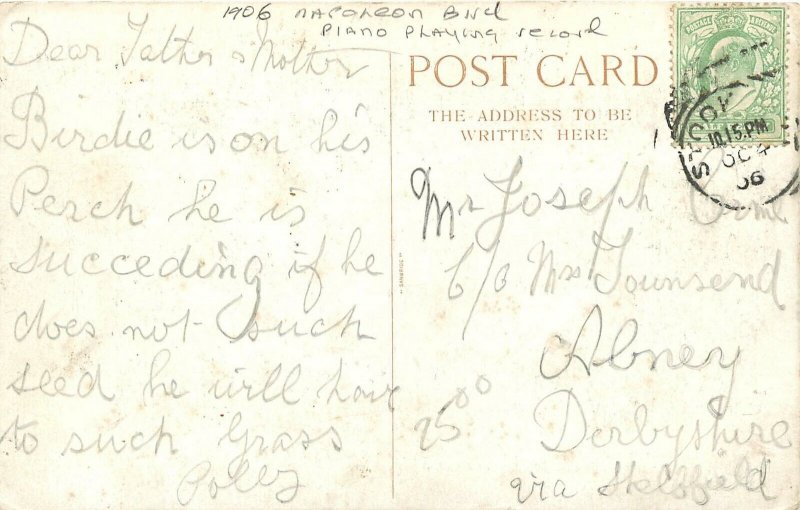 1906 NAPOLEON BIRD
PIANO PLAYING record
Dear Father & Mother
Birdie is on his
Perch he is
succeding if he
does not such
seed he will have
to such Grass
Polly
POST CARD
THE ADDRESS TO BE
WRITTEN HERE
POSTAGE & REVENUE
10.15.PM
OC 4
06
Mr Joseph Orme
C/O Mrs Townsend
Abney
Derbyshire
via Sheffield
2500